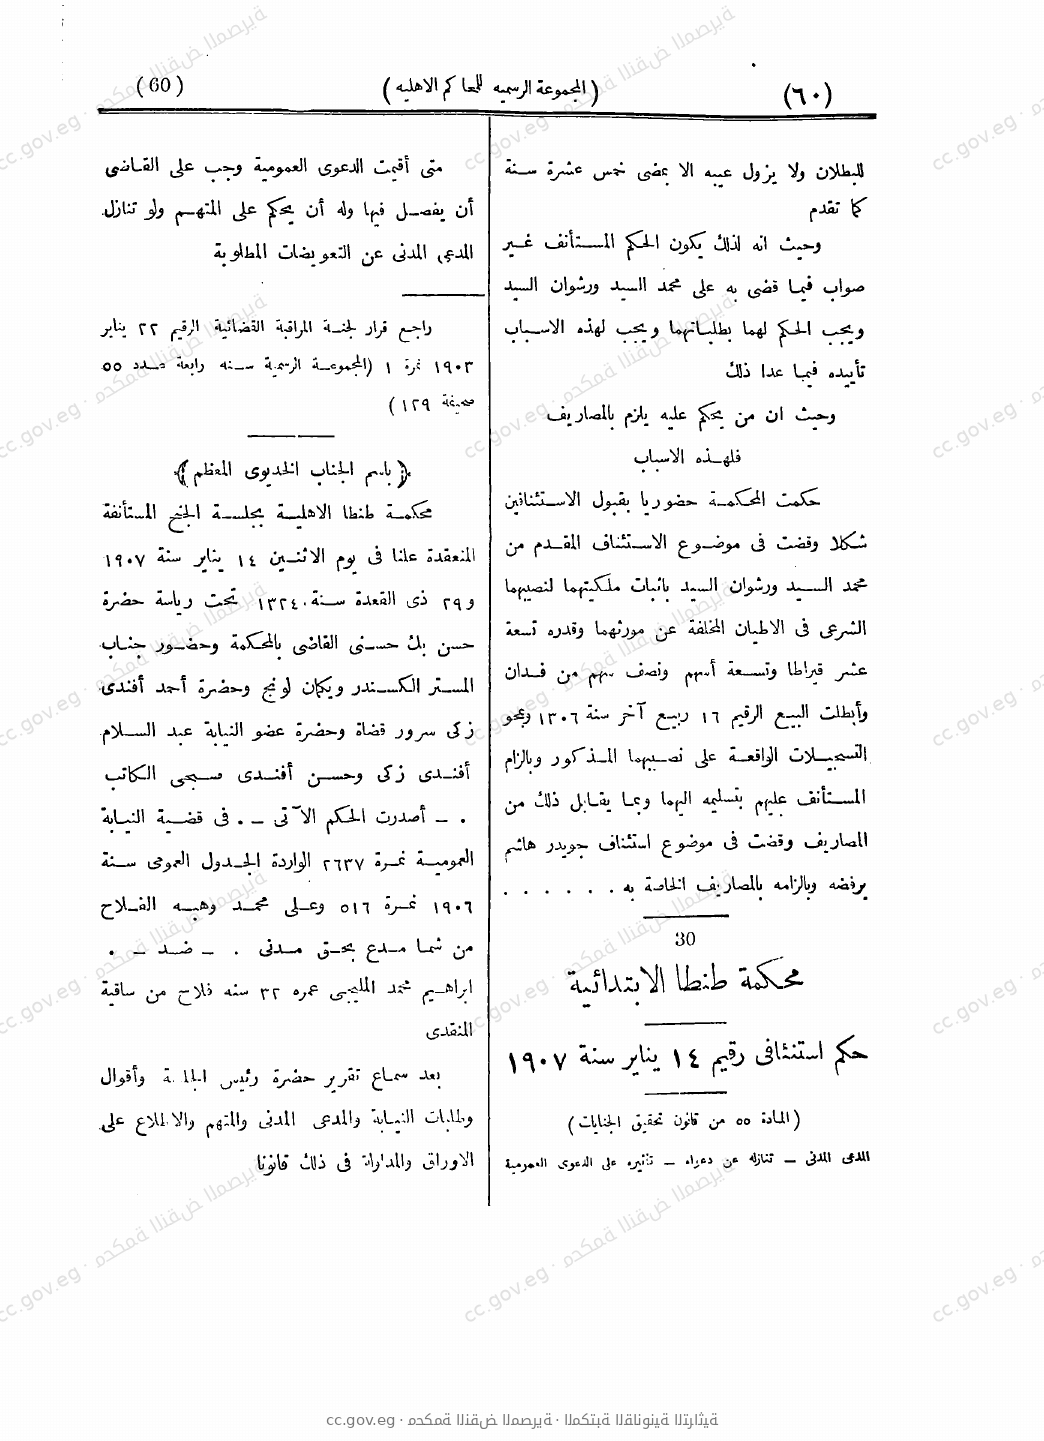 (٦٠)
(المجموعة الرسميه للمحاكم الاهليه)
(60)
للبطلان ولا يزول عيبه الا بمضى خمس عشرة سنة
كما تقدم
وحيث انه لذلك يكون الحكم المستأنف غير
صواب فيما قضى به على محمد السيد ورشوان السيد
ويجب الحكم لهما بطلباتهما ويجب لهذه الاسباب
تأييده فيما عدا ذلك
وحيث ان من يحكم عليه يلزم بالمصاريف
فلهذه الاسباب
حكمت المحكمة حضوريا بقبول الاستئنافين
شكلا وقضت فى موضوع الاستئناف المقدم من
محمد السيد ورشوان السيد باثبات ملكيتهما لنصيبهما
الشرعى فى الاطيان المخلفة عن مورثهما وقدره تسعة
عشر قيراطا وتسعة أسهم ونصف سهم من فدان
وأبطلت البيع الرقيم ١٦ ربيع آخر سنة ١٣٠٦ وبمحو
التسجيلات الواقعة على نصيبهما المذكور وبالزام
المستأنف عليهم بتسليمه اليهما وبما يقابل ذلك من
المصاريف وقضت فى موضوع استئناف جويدر هاشم
برفضه وبالزامه بالمصاريف الخاصة به . . . . . .
30
محكمة طنطا الابتدائية
حكم استئنافى رقيم ١٤ يناير سنة ١٩٠٧
(المادة ٥٥ من قانون تحقيق الجنايات)
المدعى المدنى – تنازله عن دعواه – تأثيره على الدعوى العمومية
متى أقيمت الدعوى العمومية وجب على القاضى
أن يفصل فيها وله أن يحكم على المتهم ولو تنازل
المدعى المدنى عن التعويضات المطلوبة
راجع قرار لجنة المراقبة القضائية الرقيم ٢٢ يناير
١٩٠٣ نمرة ١ (المجموعة الرسمية سنه رابعة عدد ٥٥
صحيفة ١٢٩)
﴿باسم الجناب الخديوى المعظم﴾
محكمة طنطا الاهلية بجلسة الجنح المستأنفة
المنعقدة علنا فى يوم الاثنين ١٤ يناير سنة ١٩٠٧
و٢٩ ذى القعدة سنة ١٣٢٤ تحت رياسة حضرة
حسن بك حسنى القاضى بالمحكمة وحضور جناب
المستر الكسندر ويكمان لونج وحضرة أحمد أفندى
زكى سرور قضاة وحضرة عضو النيابة عبد السلام
أفندى زكى وحسن أفندى صبحى الكاتب
. – أصدرت الحكم الآتى – . فى قضية النيابة
العمومية نمرة ٢٦٣٧ الواردة الجدول العمومى سنة
١٩٠٦ نمرة ٥١٦ وعلى محمد وهبه الفلاح
من شما مدع بحق مدنى . – ضد – .
ابراهيم محمد المليجى عمره ٣٢ سنه فلاح من ساقية
المنقدى
بعد سماع تقرير حضرة رئيس الجلسة وأقوال
وطلبات النيابة والمدعى المدنى والمتهم والاطلاع على
الاوراق والمداولة فى ذلك قانونا
cc.gov.eg · محكمة النقض المصرية · المكتبة القانونية التراثية